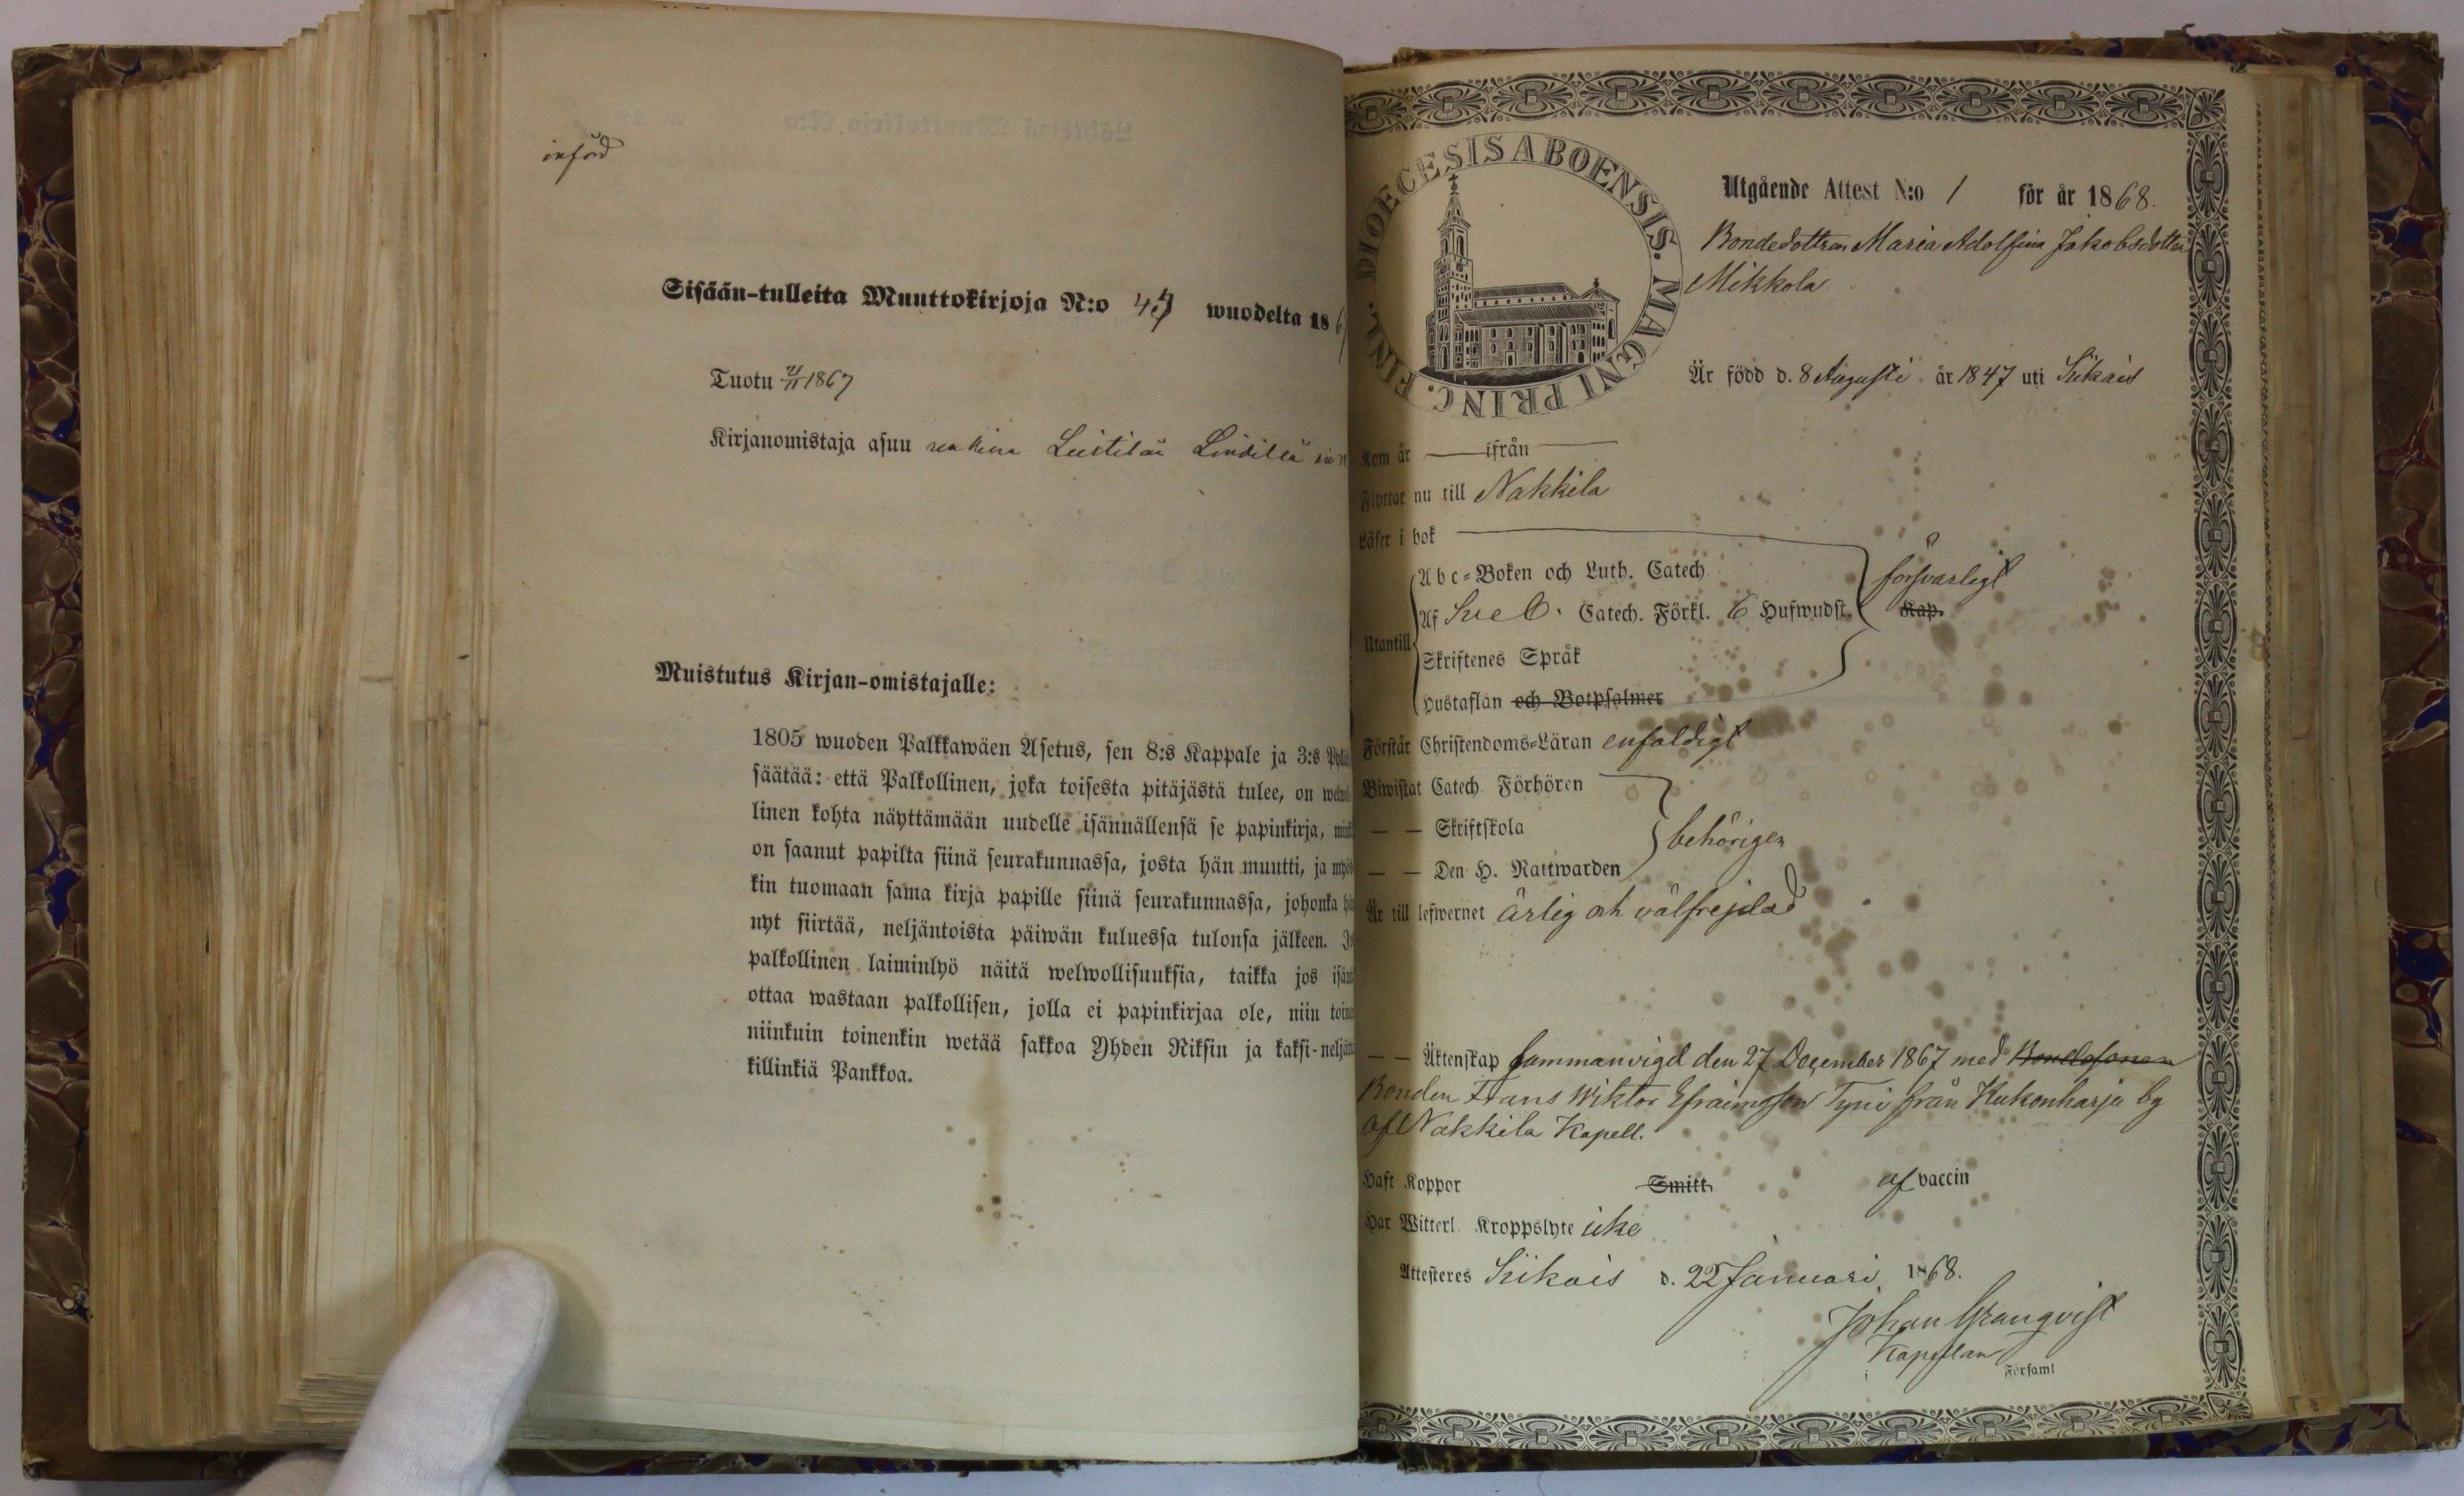 införd
Sisään-tulleita Muuttokirjoja N:o 47 wuodelta 186
Tuotu 1867
Kirjanomistaja asuu Leistilä
Muistutus Kirjan-omistajalle:
1805 wuoden Palkkawäen Asetus, sen 8:s Kappale ja 3:s
säätää: että Palkollinen, joka toisesta pitäjästä tulee, on
linen kohta näyttämään uudelle isännällensä se papinkirja,
on saanut papilta siinä seurakunnassa, josta hän muutti, ja
kin tuomaan sama kirja papille siinä seurakunnassa, johonka
nyt siirtää, neljäntoista päiwän kuluessa tulonsa jälkeen.
palkollinen laiminlyö näitä welwollisuuksia, taikka jos
ottaa wastaan palkollisen, jolla ei papinkirjaa ole, niin
niinkuin toinenkin wetää sakkoa Yhden Riksin ja kaksi-
killinkiä Pankkoa.
FINL. DIOECESIS ABOENSIS. MAGNI PRINC.
Utgående Attest N:o 1 för år 1868.
Bondedottren Maria Adolfina Jakobsdotter
Mikkola
Är född d. 8 Augusti år 1847 uti Siikais
Kom år — ifrån —
Flyttar nu till Nakkila
Läser i bok
Abc-Boken och Luth. Catech. försvarligt
Af Sveb. Catech. Förkl. 6 Hufwudst. Kap.
Utantill
Skriftenes Språk
Hustaflan och Botpsalmer
Förstår Christendoms-Läran enfaldigt
Biwistat Catech. Förhören
— — Skriftskola behörigen
— — Den H. Nattwarden
Är till lefwernet ärlig och välfrejdad
— — Äktenskap sammanvigd den 27 December 1867 med Bondesonen
Bonden Frans Wiktor Efraimsson Tyni från Kukonharja by
af Nakkila Kapell.
Haft Koppor Smitt af vaccin
Har Witterl. Kroppslyte icke
Attesteres Siikais d. 22 Januari 1868.
Johan Granqvist
Kapellan
Församl